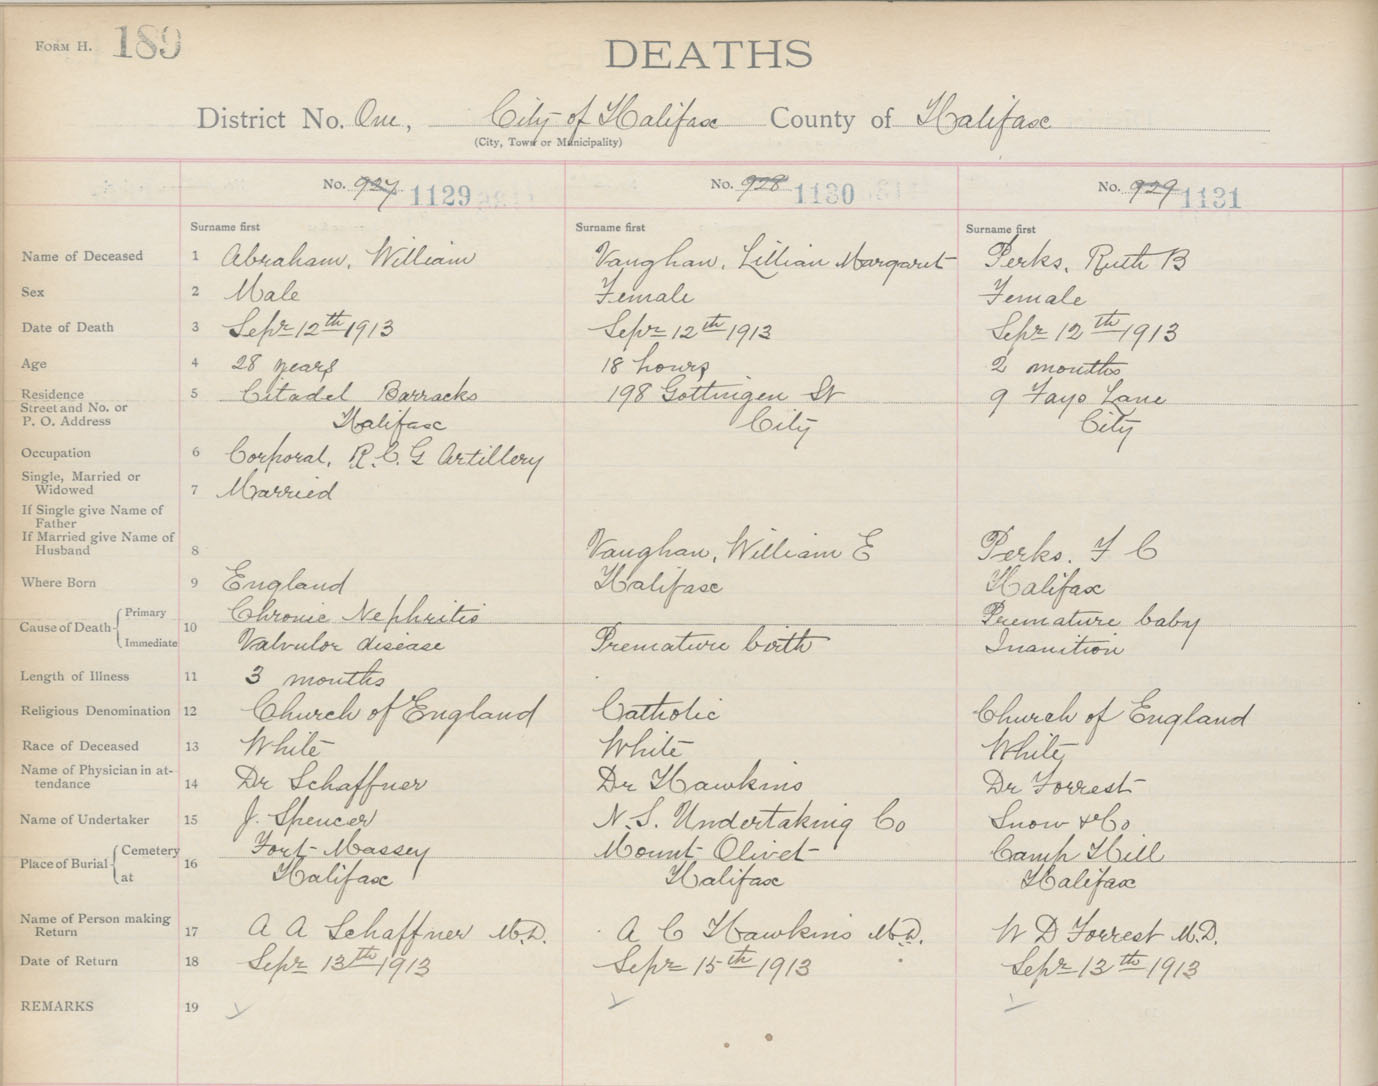 FORM H. 189
DEATHS
District No. One, City of Halifax County of Halifax
(City, Town or Municipality)
No. 927 1129 No. 928 1130 No. 929 1131
Surname first Surname first Surname first
Name of Deceased 1 Abraham, William Vaughan, Lillian Margaret Perks, Ruth B
Sex 2 Male Female Female
Date of Death 3 Sepr 12th 1913 Sepr 12th 1913 Sepr 12th 1913
Age 4 28 years 18 hours 2 months
Residence 5 Citadel Barracks 198 Gottingen St 9 Fayo Lane
Street and No. or
P. O. Address Halifax City City
Occupation 6 Corporal, R.C.G Artillery
Single, Married or
Widowed 7 Married
If Single give Name of
Father
If Married give Name of
Husband 8 Vaughan, William E Perks. F C
Where Born 9 England Halifax Halifax
Cause of Death 10 Primary Chronic Nephritis Premature baby
Immediate Valvulor disease Premature birth Inanition
Length of Illness 11 3 months
Religious Denomination 12 Church of England Catholic Church of England
Race of Deceased 13 White White White
Name of Physician in at-
tendance 14 Dr Schaffner Dr Hawkins Dr Forrest
Name of Undertaker 15 J. Spencer N. S. Undertaking Co Snow & Co
Place of Burial 16 Cemetery Fort Massey Mount Olivet Camp Hill
at Halifax Halifax Halifax
Name of Person making
Return 17 A A Schaffner M.D. A C Hawkins M.D. W D Forrest M.D.
Date of Return 18 Sepr 13th 1913 Sepr 15th 1913 Sepr 13th 1913
REMARKS 19